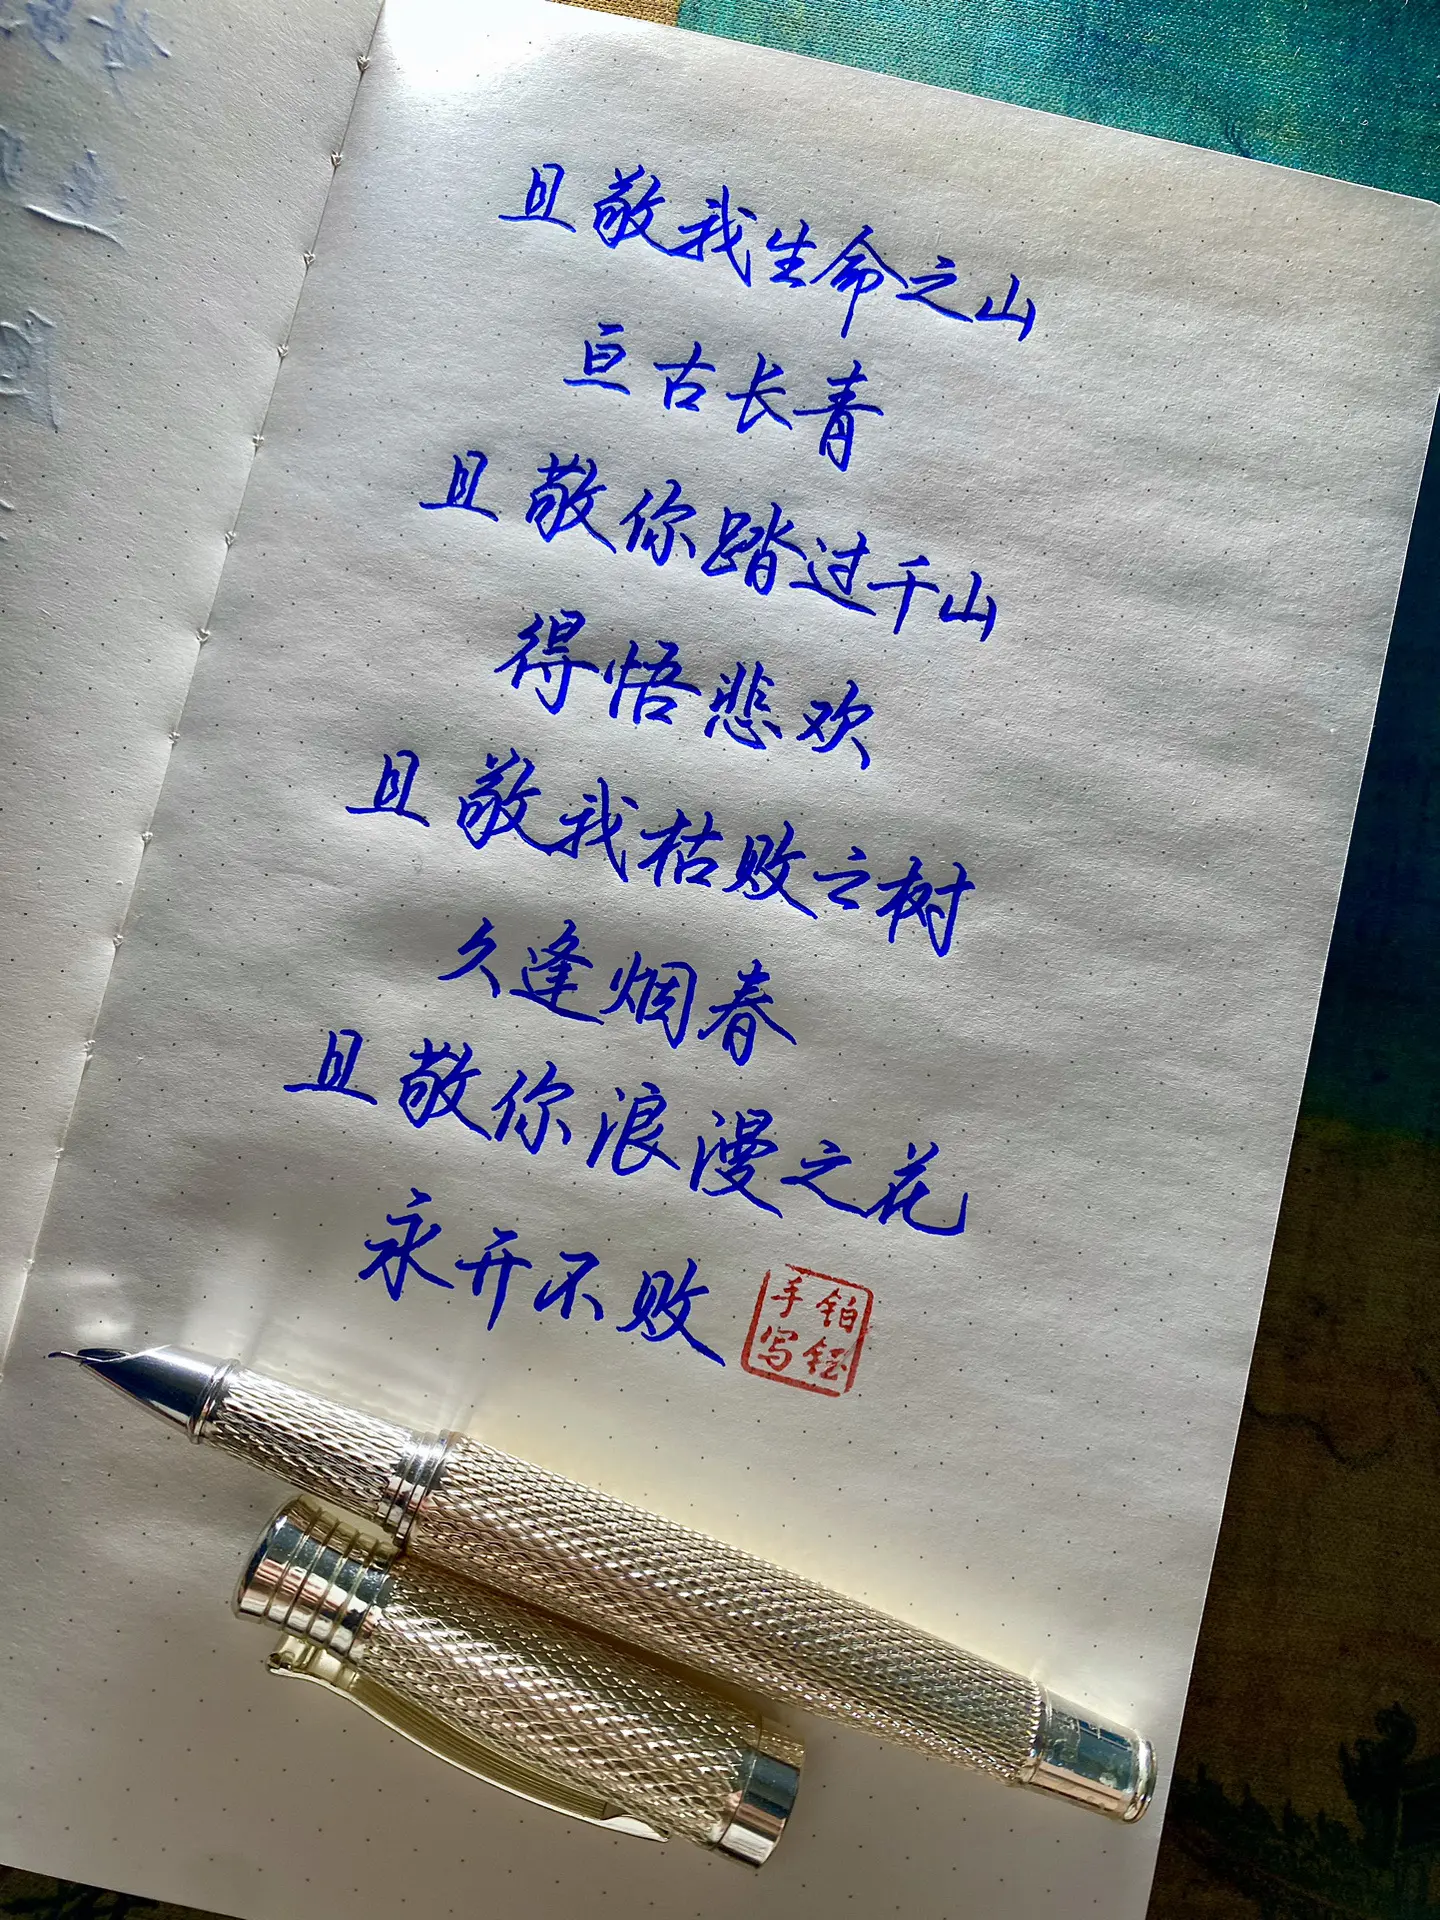 且敬我生命之山
亘古长青
且敬你踏过千山
得悟悲欢
且敬我枯败之树
久逢烟春
且敬你浪漫之花
永开不败
铂钰
手写